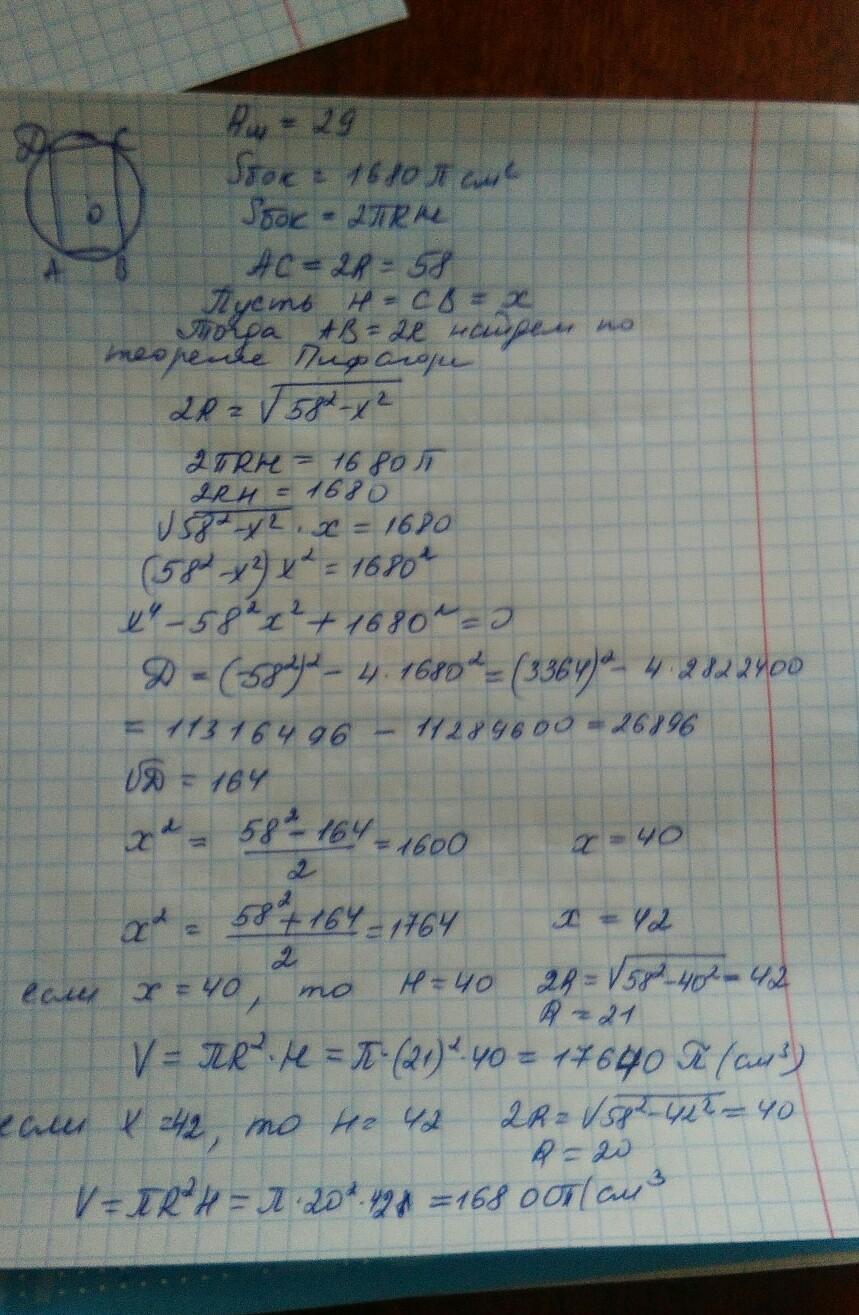 Д C
O
A B
Rш = 29
Sбок = 1680 π см²
Sбок = 2πRH
AC = 2R = 58
Пусть H = CB = x
Тогда AB = 2R найдем по
теореме Пифагора
2R = √(58² - x²)
2πRH = 1680π
2RH = 1680
√(58² - x²) · x = 1680
(58² - x²) x² = 1680²
x⁴ - 58²x² + 1680² = 0
Д = (-58²)² - 4 · 1680² = (3364)² - 4 · 2822400
= 11316496 - 11289600 = 26896
√Д = 164
x² = (58² - 164)/2 = 1600 x = 40
x² = (58² + 164)/2 = 1764 x = 42
если x = 40, то H = 40 2R = √(58² - 40²) = 42
R = 21
V = πR² · H = π · (21)² · 40 = 17640 π (см³)
если x = 42, то H = 42 2R = √(58² - 42²) = 40
R = 20
V = πR²H = π · 20² · 42 = 16800π (см³